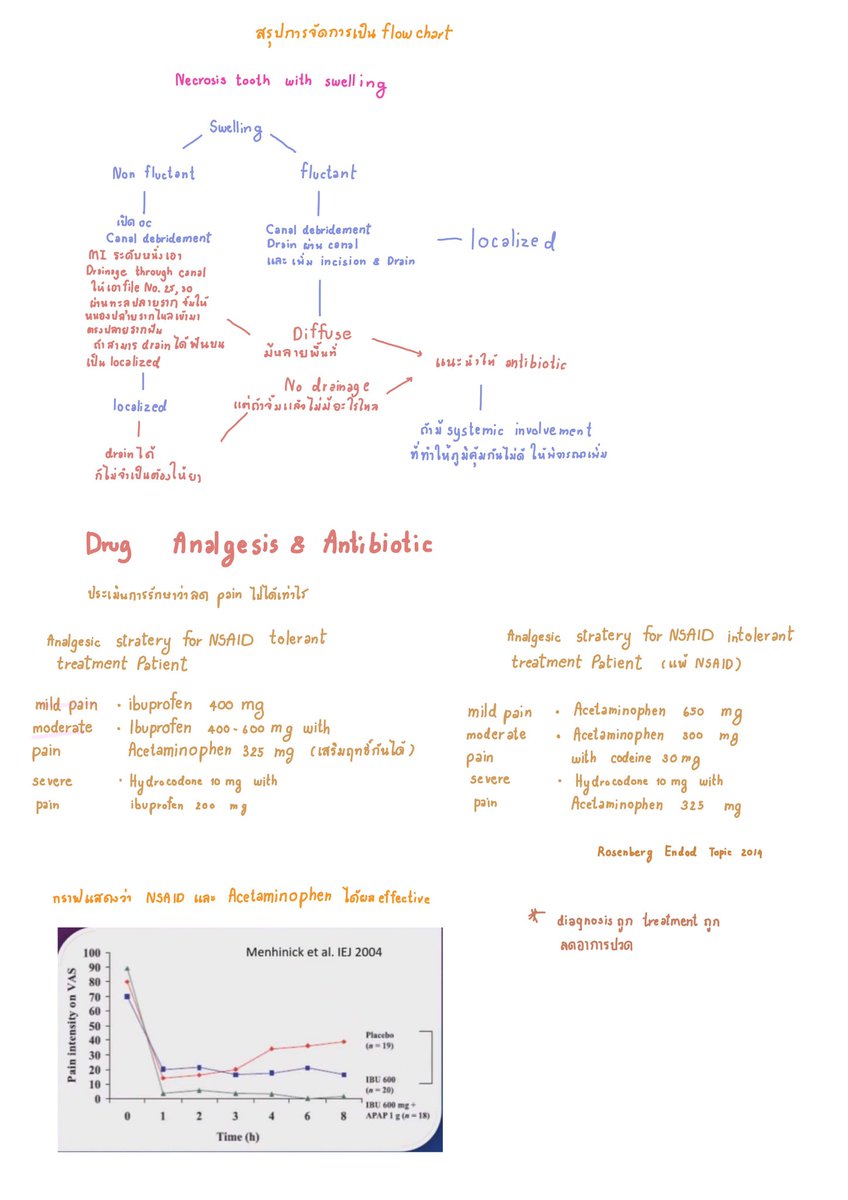 สรุปการจัดการเป็น flow chart
Necrosis tooth with swelling
Swelling
Non fluctant
fluctant
เปิด oc
Canal debridement
MI ระดับหนึ่งเอา
Drainage through canal
ให้เอา file No. 25, 30
ผ่านทะลุปลายราก จิ้มให้
หนองปลายรากไหลเข้ามา
ตรงปลายรากฟัน
ถ้าสามาร drain ได้ ฟันบน
เป็น localized
localized
drain ได้
ก็ไม่จำเป็นต้องให้ยา
Canal debridement
Drain ผ่าน canal
และ เพิ่ม incision & Drain
localized
Diffuse
มันหลายพื้นที่
No drainage
แต่ถ้าจิ้มแล้วไม่มีอะไรไหล
แนะนำให้ antibiotic
ถ้ามี systemic involvement
ที่ทำให้ภูมิคุ้มกันไม่ดี ให้พิจารณาเพิ่ม
Drug Analgesis & Antibiotic
ประเมินการรักษาว่าลด pain ไปได้เท่าไร
Analgesic stratery for NSAID tolerant
treatment Patient
mild pain • ibuprofen 400 mg
moderate • Ibuprofen 400-600 mg with
pain Acetaminophen 325 mg (เสริมฤทธิ์กันได้)
severe • Hydrocodone 10 mg with
pain ibuprofen 200 mg
Analgesic stratery for NSAID intolerant
treatment Patient (แพ้ NSAID)
mild pain • Acetaminophen 650 mg
moderate • Acetaminophen 300 mg
pain with codeine 30 mg
severe • Hydrocodone 10 mg with
pain Acetaminophen 325 mg
Rosenberg Endod Topic 2014
กราฟแสดงว่า NSAID และ Acetaminophen ได้ผล effective
* diagnosis ถูก treatment ถูก
ลดอาการปวด
Menhinick et al. IEJ 2004
Pain intensity on VAS
100
90
80
70
60
50
40
30
20
10
0
0 1 2 3 4 6 8
Time (h)
Placebo
(n = 19)
IBU 600
(n = 20)
IBU 600 mg +
APAP 1 g (n = 18)